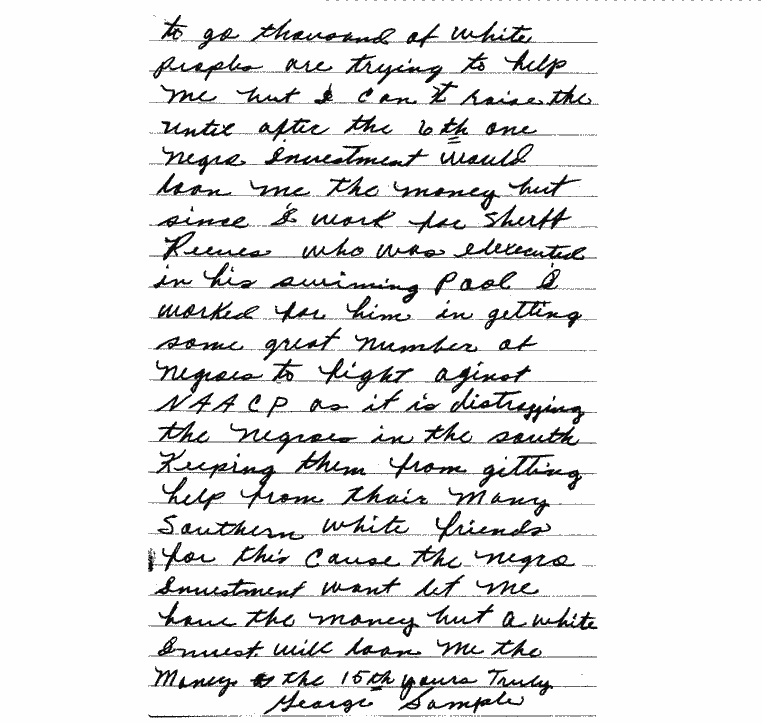 to go thousand of white
peoples are trying to help
me but I can't raise the
until after the 6th one
negro Investment would
loan me the money but
since I work for Sherff
Reeves who was elexecuted
in his swiming Pool I
worked for him in getting
some great number of
negroes to fight aginst
NAACP as it is distrozzing
the negroes in the south
Keeping them from gitting
help from thair Many
Southern white friends
for this cause the negro
Investment wont let me
have the money but a white
Invest. will loan me the
Money the 15th yours Truly
George Sample